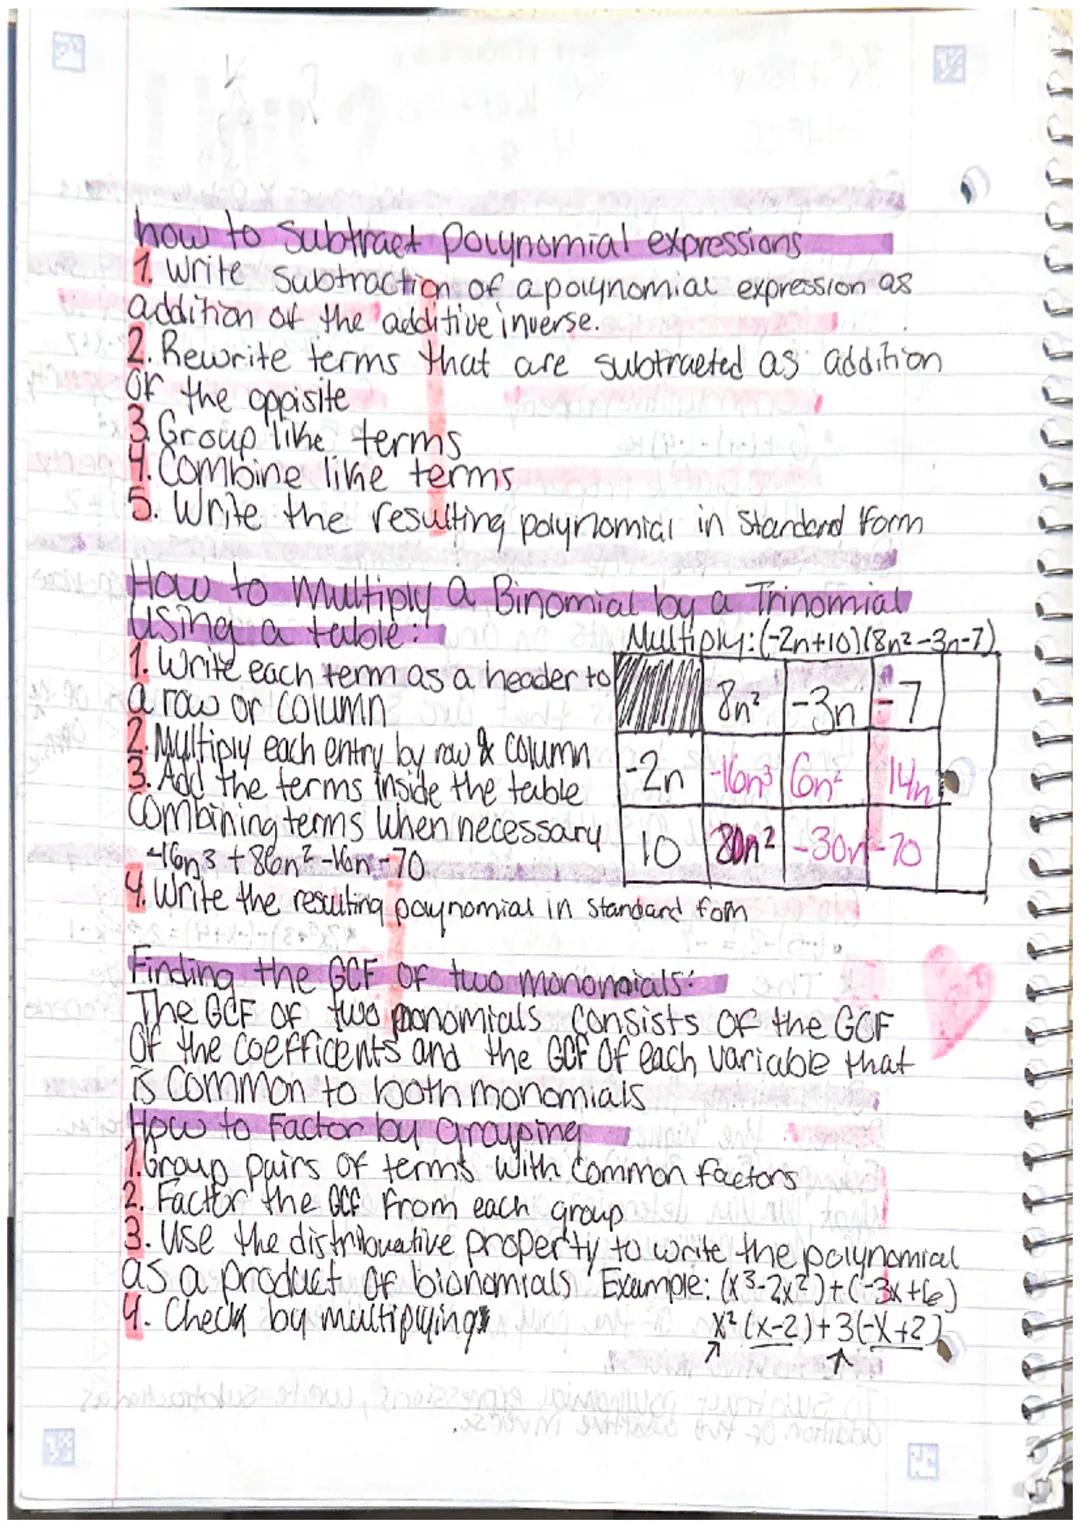 how to Subtract polynomial expressions
1. Write subtraction of a polynomial expression as
addition of the additive inverse.
2. Rewrite terms that are subtracted as addition
of the oppisite
3. Group like terms
4. Combine like terms
5. Write the resulting polynomial in Standard form
How to Multiply a Binomial by a Trinomial
using a table:
Multiply: (-2n+10)(8n²-3n-7)
1. Write each term as a header to
a row or column
8n² -3n -7
2. Multiply each entry by row & column
-2n -16n³ 6n² 14n
3. Add the terms inside the table
combining terms when necessary
10 80n² -30n -70
-16n3 + 86n² -16n -70
4. Write the resulting poynomial in standard fom
Finding the GCF of two monomials:
The GCF of two monomials consists of the GCF
of the coefficents and the GCF of each variable that
is common to both monomials
How to Factor by grouping
1. Group pairs of terms with common factors
2. Factor the GCF from each group
3. Use the distribuative property to write the polynomial
as a product of bionomials Example: (x3-2x²)+(-3x+6)
4. Check by multiplying
x² (x-2)+3(-x+2)